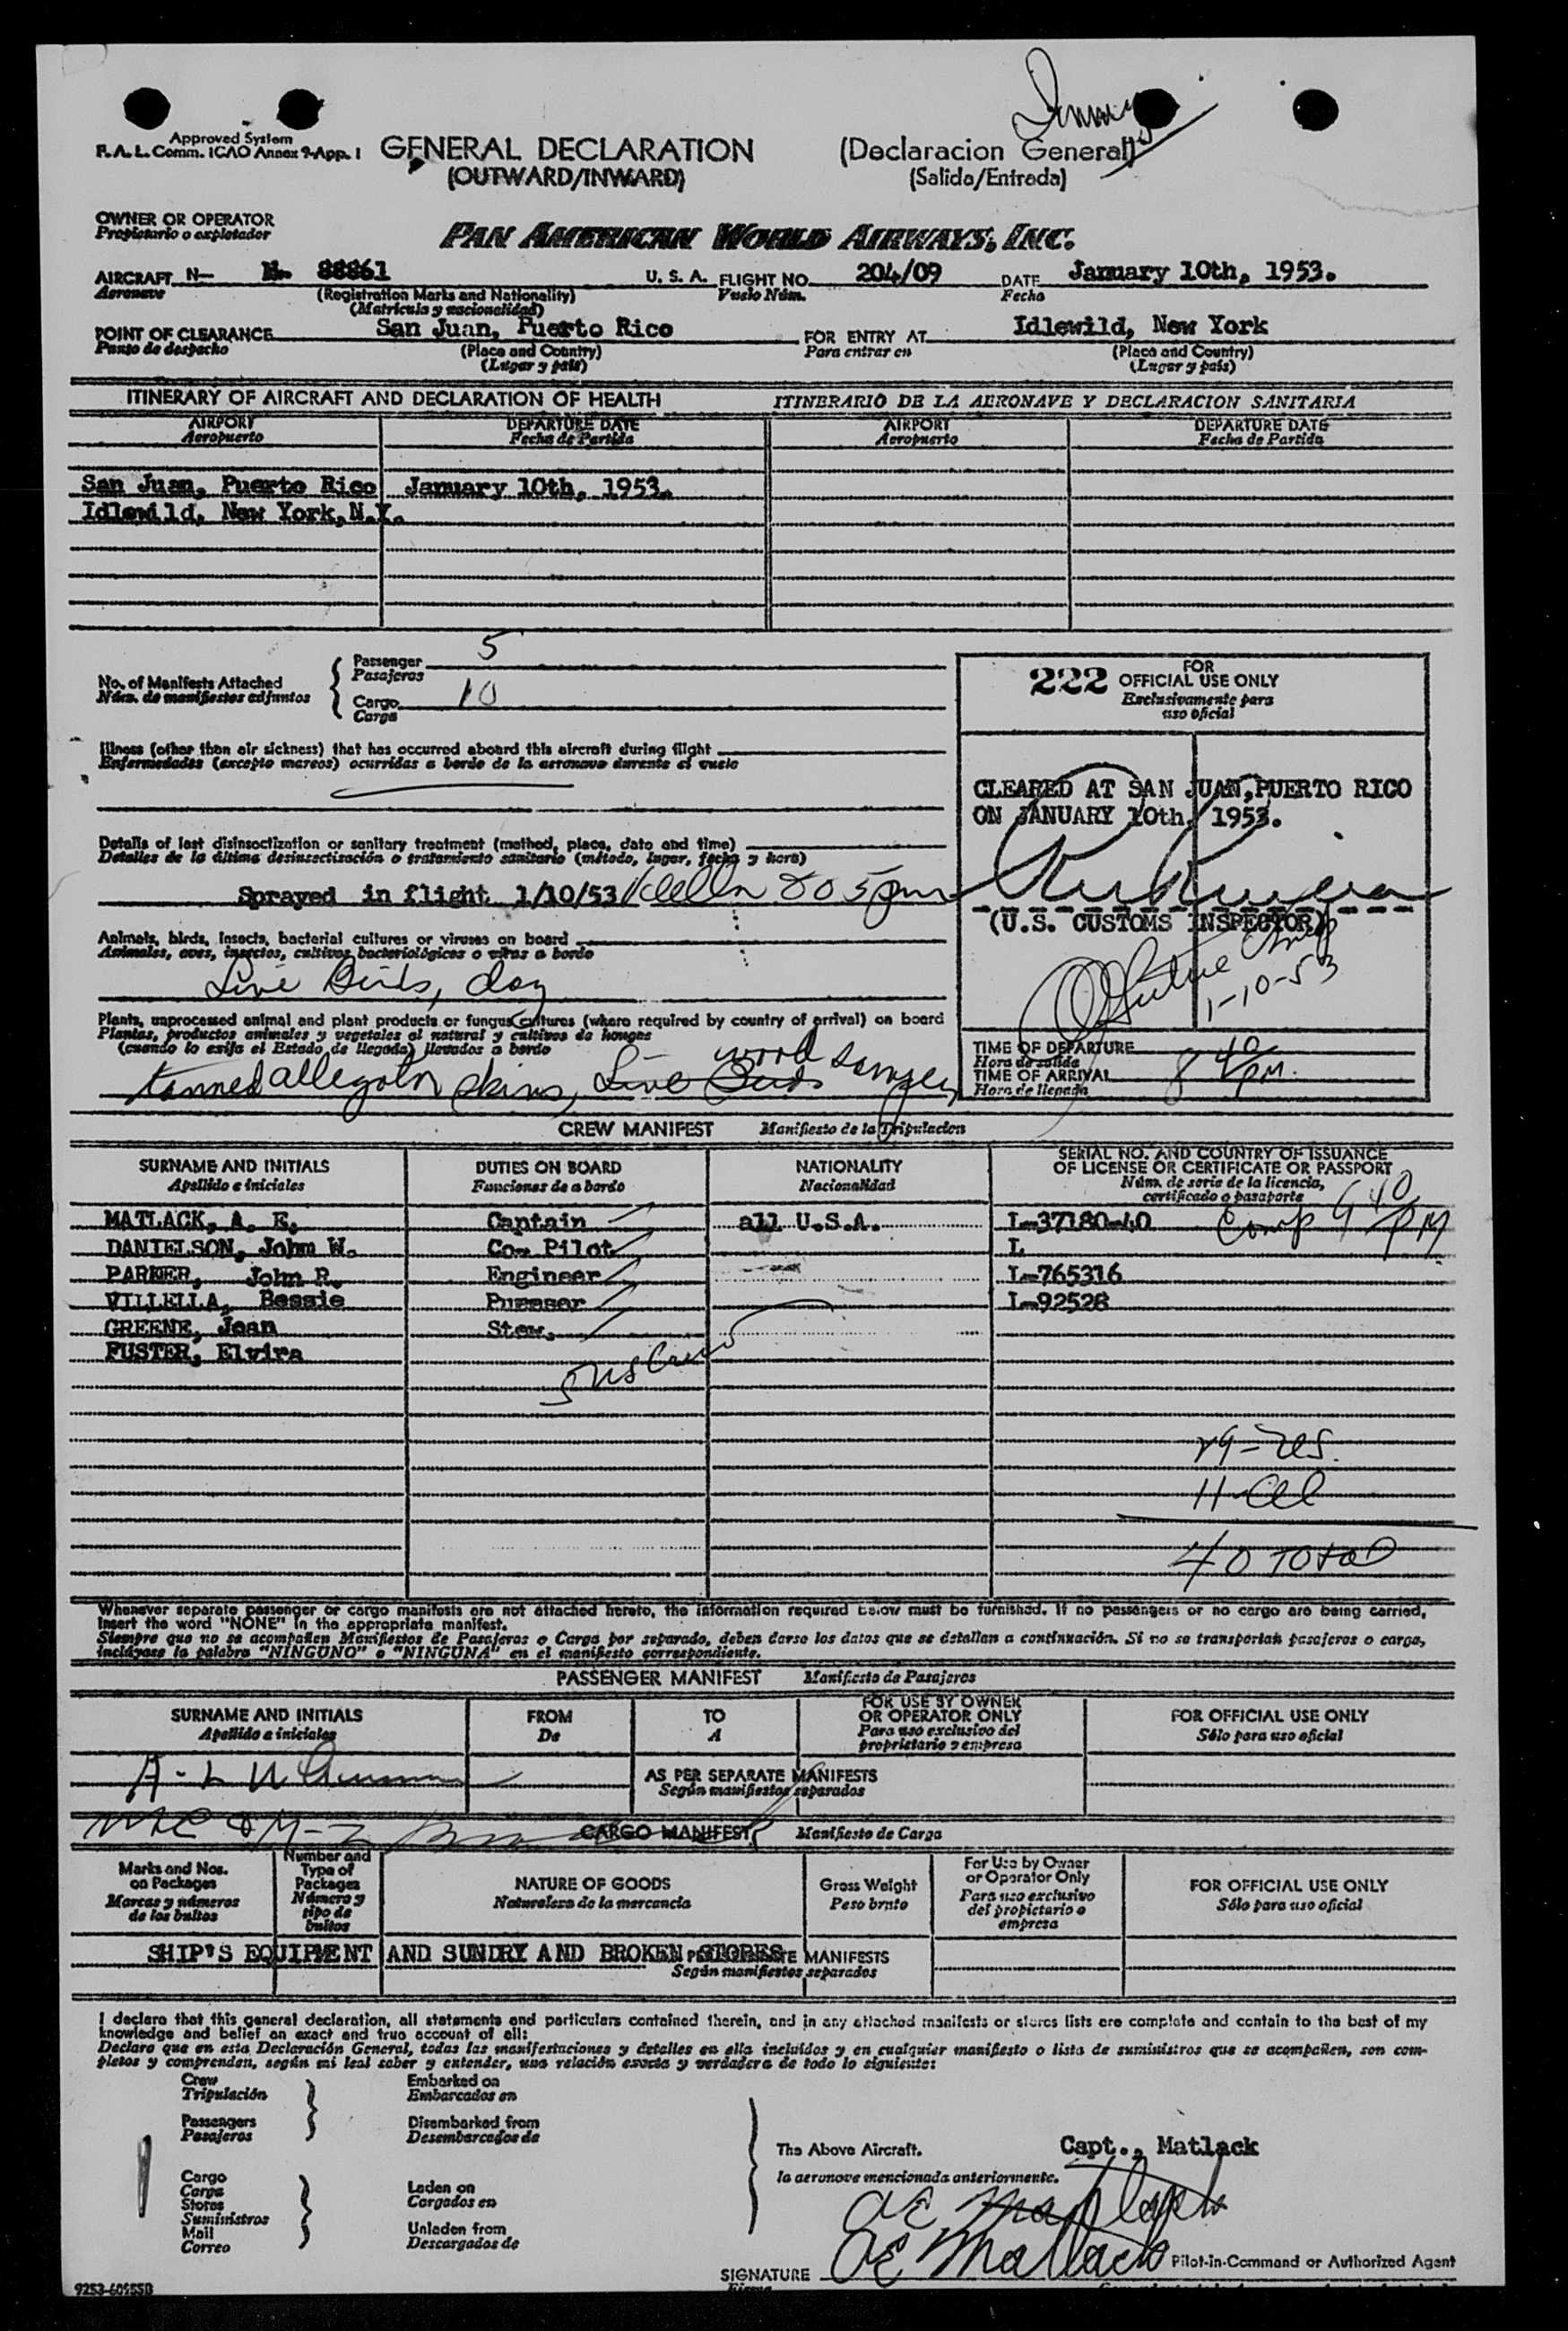 Approved System
F.A.L. Comm. ICAO Annex 9-App. 1
GENERAL DECLARATION (Declaracion General)
(OUTWARD/INWARD) (Salida/Entrada)
OWNER OR OPERATOR
Propietario o explotador
PAN AMERICAN WORLD AIRWAYS, INC.
AIRCRAFT N- N- 88861 U. S. A. FLIGHT NO. 204/09 DATE January 10th, 1953.
Aeronave (Registration Marks and Nationality) Vuelo Núm. Fecha
(Matricula y nacionalidad)
POINT OF CLEARANCE San Juan, Puerto Rico FOR ENTRY AT Idlewild, New York
Punto de despacho (Place and Country) Para entrar en (Place and Country)
(Lugar y país) (Lugar y país)
ITINERARY OF AIRCRAFT AND DECLARATION OF HEALTH ITINERARIO DE LA AERONAVE Y DECLARACION SANITARIA
AIRPORT DEPARTURE DATE AIRPORT DEPARTURE DATE
Aeropuerto Fecha de Partida Aeropuerto Fecha de Partida
San Juan, Puerto Rico January 10th, 1953.
Idlewild, New York, N.Y.
No. of Manifests Attached
Núm. de manifiestos adjuntos
Passenger 5
Pasajeros
Cargo 10
Carga
222 FOR
OFFICIAL USE ONLY
Exclusivamente para
uso oficial
Illness (other than air sickness) that has occurred aboard this aircraft during flight
Enfermedades (excepto mareos) ocurridas a bordo de la aeronave durante el vuelo
CLEARED AT SAN JUAN, PUERTO RICO
ON JANUARY 10th, 1953.
Details of last disinsectization or sanitary treatment (method, place, date and time)
Detalles de la última desinsectización o tratamiento sanitario (método, lugar, fecha y hora)
Sprayed in flight 1/10/53 805 pm
(U.S. CUSTOMS INSPECTOR)
1-10-53
Animals, birds, insects, bacterial cultures or viruses on board
Animales, aves, insectos, cultivos bacteriológicos o virus a bordo
Live Birds, dog
Plants, unprocessed animal and plant products or fungus cultures (where required by country of arrival) on board
Plantas, productos animales y vegetales al natural y cultivos de hongos
(cuando lo exija el Estado de llegada) llevados a bordo
tanned skins, Live Birds wood
TIME OF DEPARTURE
Hora de salida
TIME OF ARRIVAL 8 40 PM.
Hora de llegada
CREW MANIFEST Manifiesto de la Tripulacion
SURNAME AND INITIALS DUTIES ON BOARD NATIONALITY SERIAL NO. AND COUNTRY OF ISSUANCE
OF LICENSE OR CERTIFICATE OR PASSPORT
Apellido e iniciales Funciones de a bordo Nacionalidad Núm. de serie de la licencia,
certificado o pasaporte
MATLACK, A. E. Captain all U.S.A. L-37180-40 Comp 9 40 PM
DANIELSON, John W. Co- Pilot L
PARKER, John R. Engineer L-765316
VILLELLA, Bessie Purser L-92528
GREENE, Joan Stew.
FUSTER, Elvira
29-
11-
40 Total
Whenever separate passenger or cargo manifests are not attached hereto, the information required below must be furnished. If no passengers or no cargo are being carried,
insert the word "NONE" in the appropriate manifest.
Siempre que no se acompañen Manifiestos de Pasajeros o Carga por separado, deben darse los datos que se detallan a continuación. Si no se transportan pasajeros o carga,
inclúyase la palabra "NINGUNO" o "NINGUNA" en el manifiesto correspondiente.
PASSENGER MANIFEST Manifiesto de Pasajeros
SURNAME AND INITIALS FROM TO FOR USE BY OWNER
OR OPERATOR ONLY FOR OFFICIAL USE ONLY
Apellido e iniciales De A Para uso exclusivo del
propietario o empresa Sólo para uso oficial
AS PER SEPARATE MANIFESTS
Según manifiestos separados
CARGO MANIFEST Manifiesto de Carga
Marks and Nos.
on Packages
Marcas y números
de los bultos
Number and
Type of
Packages
Número y
tipo de
bultos
NATURE OF GOODS
Naturaleza de la mercancia
Gross Weight
Peso bruto
For Use by Owner
or Operator Only
Para uso exclusivo
del propietario o
empresa
FOR OFFICIAL USE ONLY
Sólo para uso oficial
SHIP'S EQUIPMENT AND SUNDRY AND BROKEN STORES MANIFESTS
Según manifiestos separados
I declare that this general declaration, all statements and particulars contained therein, and in any attached manifests or stores lists are complete and contain to the best of my
knowledge and belief an exact and true account of all:
Declaro que en esta Declaración General, todas las manifestaciones y detalles en ella incluidos y en cualquier manifiesto o lista de suministros que se acompañen, son com-
pletos y comprenden, según mi leal saber y entender, una relación exacta y verdadera de todo lo siguiente:
Crew
Tripulación
Embarked on
Embarcados en
Passengers
Pasajeros
Disembarked from
Desembarcados de
Cargo
Carga
Stores
Suministros
Mail
Correo
Laden on
Cargados en
Unladen from
Descargados de
The Above Aircraft.
la aeronave mencionada anteriormente.
Capt., Matlack
AE Matlack
AE Matlack
SIGNATURE Pilot-in-Command or Authorized Agent
Firma